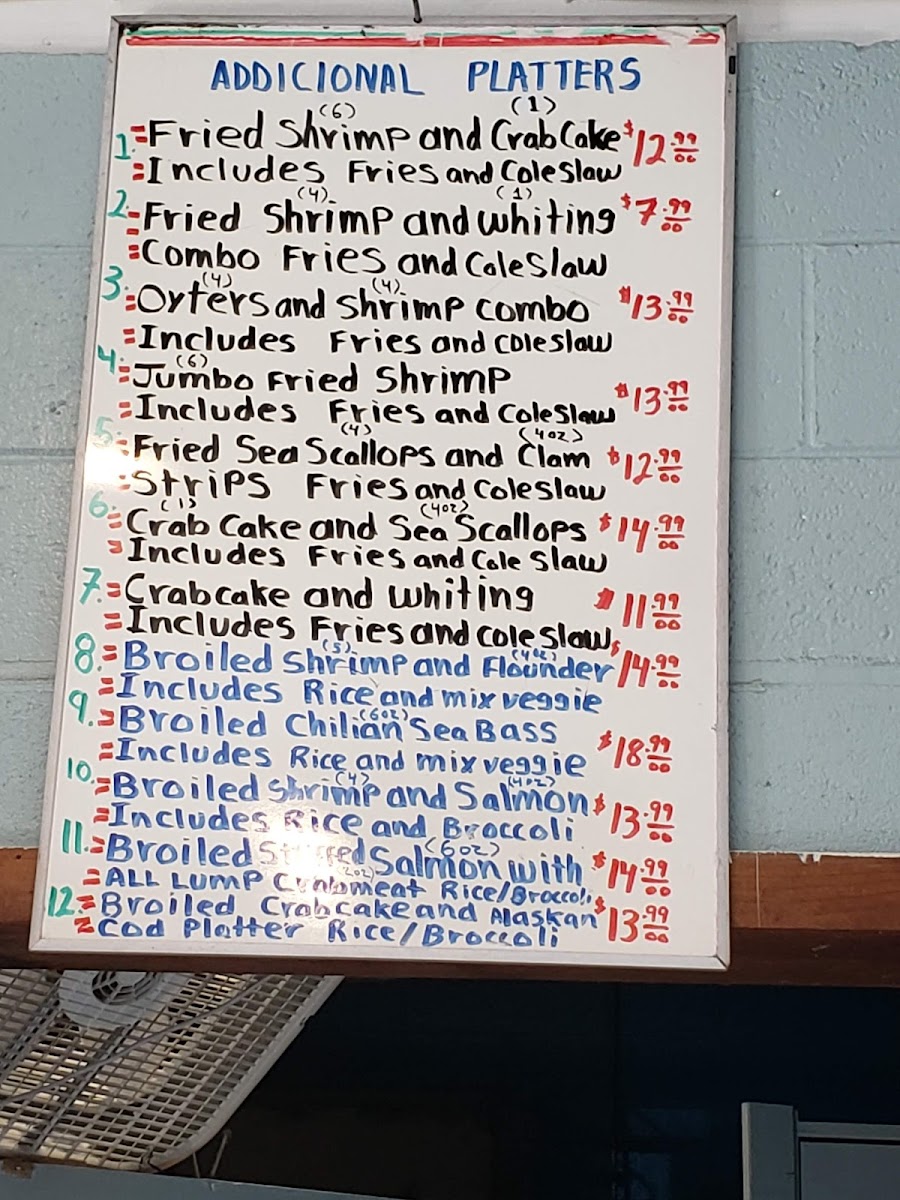 ADDICIONAL PLATTERS
(6) (1)
1. = Fried Shrimp and Crab Cake $12.99
= Includes Fries and Coleslaw
(4) (1)
2. = Fried Shrimp and whiting $7.99
= Combo Fries and Coleslaw
(4) (4)
3. = Oyters and shrimp combo $13.99
= Includes Fries and coleslaw
(6)
4. = Jumbo Fried Shrimp $13.99
= Includes Fries and Coleslaw
(4) (4oz)
5. = Fried Sea Scallops and Clam $12.99
= Strips Fries and Coleslaw
(1) (4oz)
6. = Crab Cake and Sea Scallops $14.99
= Includes Fries and Cole Slaw
7. = Crabcake and whiting $11.99
= Includes Fries and cole slaw
(5) (4oz)
8. = Broiled Shrimp and Flounder $14.99
= Includes Rice and mix veggie
(6oz)
9. = Broiled Chilian Sea Bass $18.99
= Includes Rice and mix veggie
(4) (4oz)
10. = Broiled Shrimp and Salmon $13.99
= Includes Rice and Broccoli
(6oz)
11. = Broiled Salmon with $14.99
(2oz)
= ALL LUMP Crabmeat Rice/Broccoli
12. = Broiled Crabcake and Alaskan $13.99
= Cod Platter Rice/Broccoli